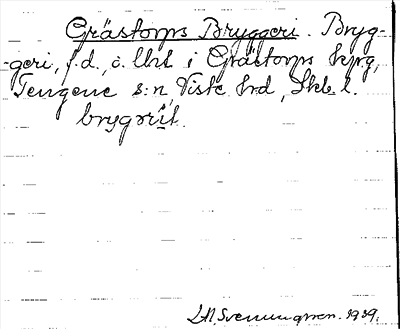 Grästorps Bryggeri. Bryg-
-geri, f.d., o. Uht i Grästorps kpg,
Tengene s:n, Viste hrd, Skb. l.
bryggeriet.
Svenungsson. 1939.